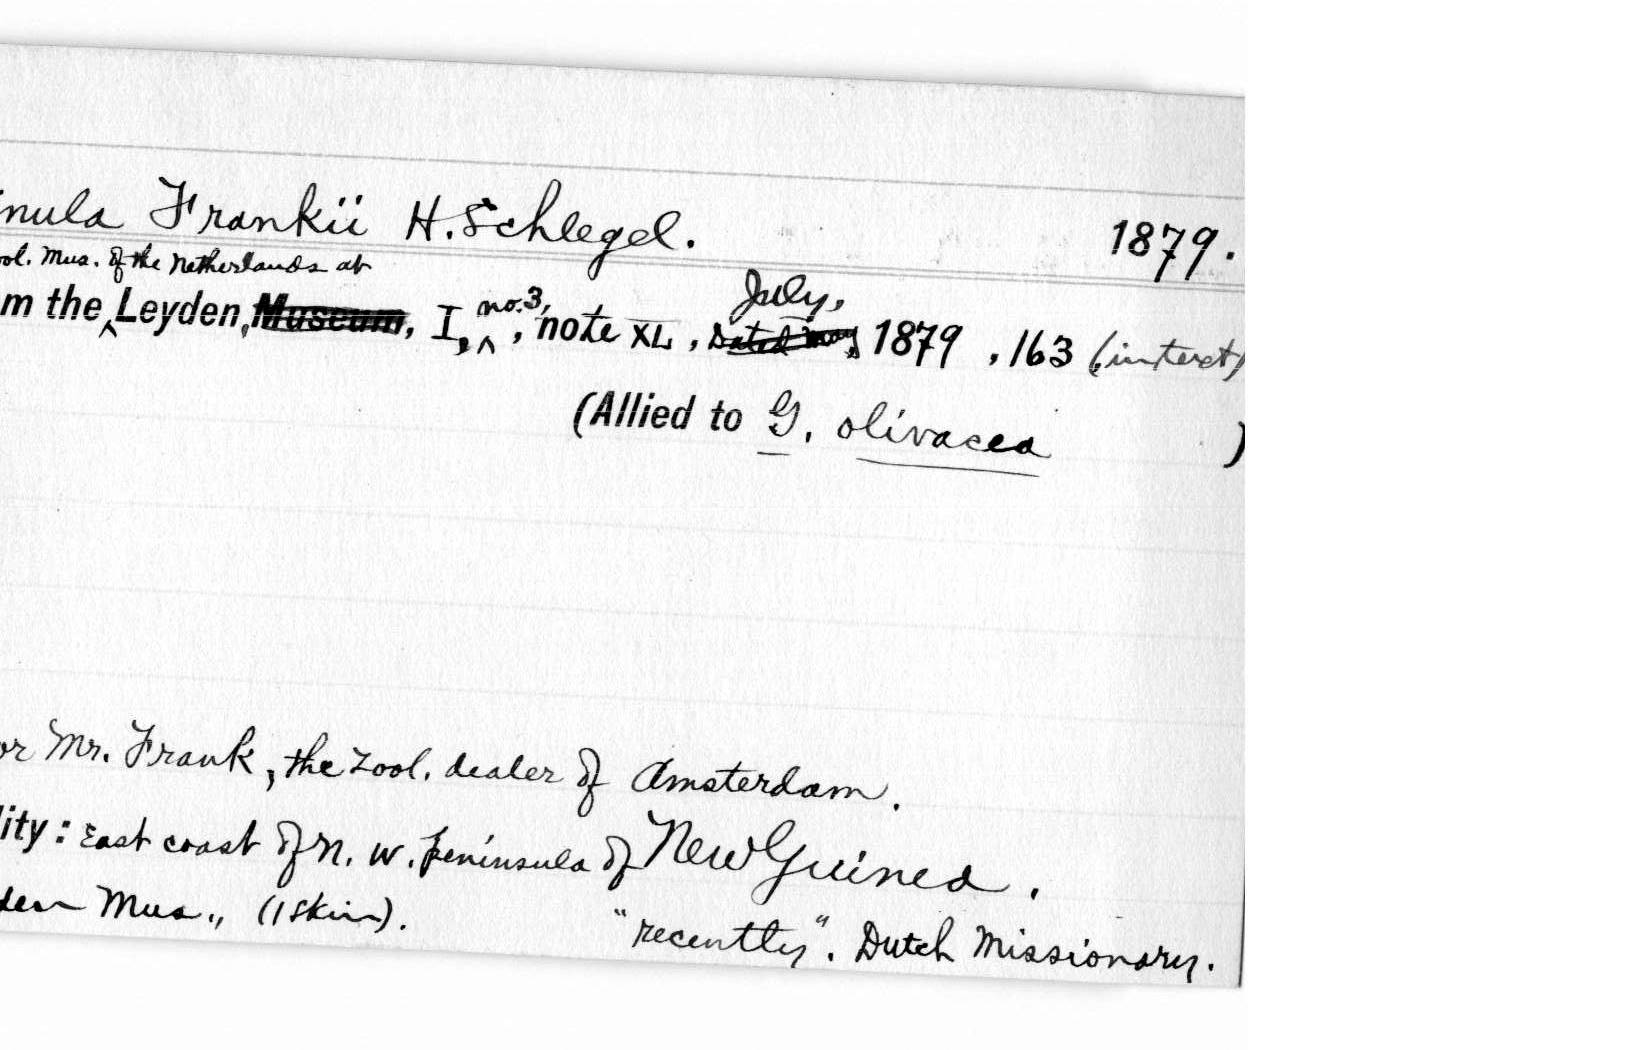 nula Frankii H. Schlegel. 1879.
ool. Mus. of the Netherlands at
m the Leyden, Museum, I, no. 3, note XL, July, Dated May, 1879, 163 (in text)
(Allied to G. olivacea )
or Mr. Frank, the zool. dealer of Amsterdam.
lity: East coast of N. W. peninsula of New Guinea.
den Mus., (1 skin). "recently". Dutch Missionary.